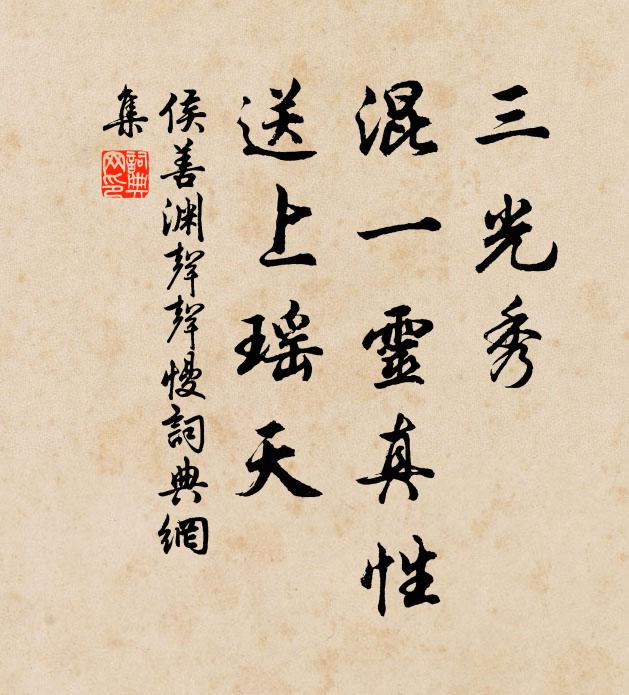 三光秀
混一靈真性
送上瑤天
侯善渊聲聲慢詞典網
集
詞典
网印